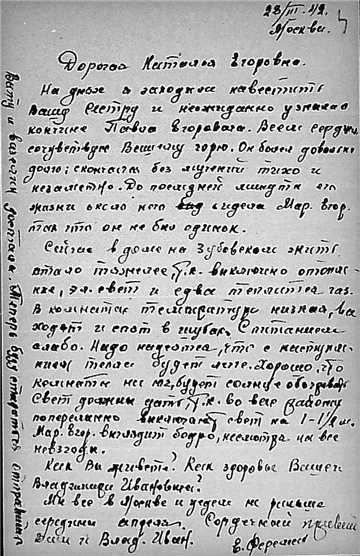 28/III.42.
Москва.
Дорогая Наталья Егоровна.
На днях я заходила навестить
Вашу сестру и неожиданно узнала о
кончине Павла Егоровича. Всем сердцем
сочувствую Вашему горю. Он болел довольно
долго; скончался без мучений тихо и
незаметно. До последней минуты его
жизни около него сидела Мар. Егор.
так что он не был одинок.
Сейчас в доме на Зубовском жить
стало тяжелее т.к. выключено отопле-
ние, эл. свет и едва теплится газ.
В комнатах температура низкая,
ходят и спят в шубах. С питанием
слабо. Надо надеяться, что с наступле-
нием тепла будет легче. Хорошо, что
комната на юг, будет солнце обогревать
Свет должны дать, т.к. во всех районах
попеременно выключают свет на 1-1½ м.
Мар. Егор. выглядит бодро, несмотря на все
невзгоды.
Как Вы живете? Как здоровье Вашего
Владимира Ивановича?
Мы все в Москве и уедем не раньше
середины апреля. Сердечный привет
и Влад. Иван.
Теперь буду